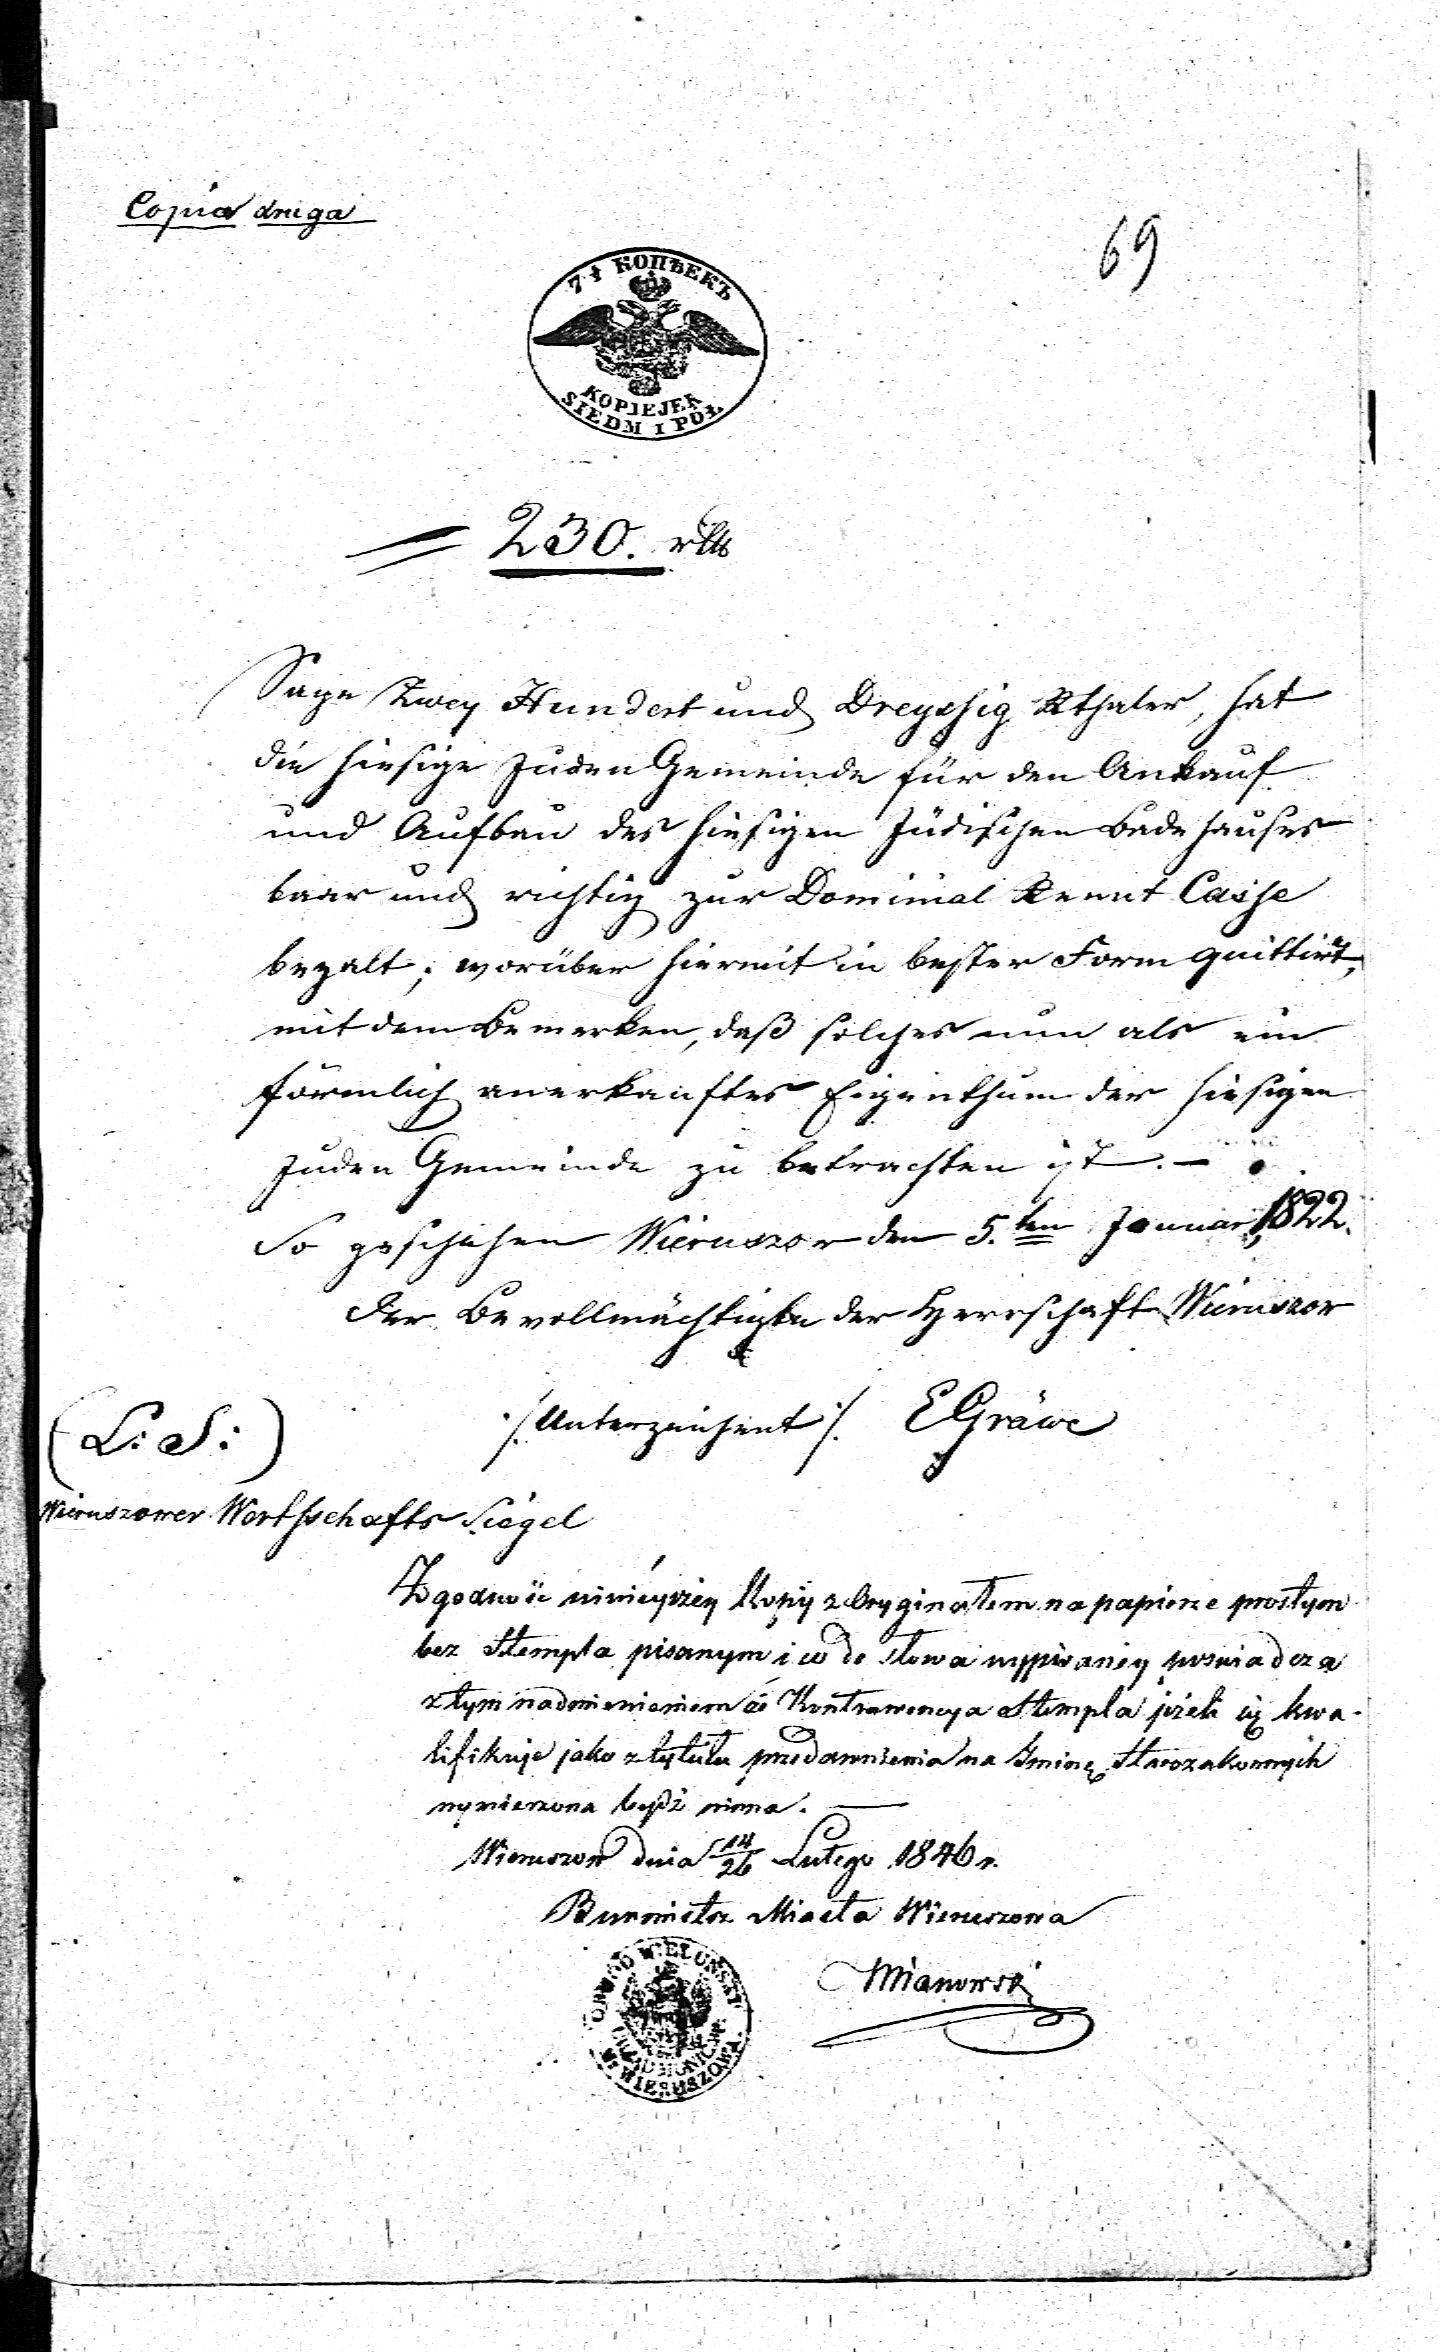 Copia druga
69
7½ КОПѢЕКЪ
KOPIEJEK
SIEDM I PÓŁ
= 230. rtlr
Sage Zwey Hundert und Dreyssig Rthaler, hat
die hiesige Juden Gemeinde für den Ankauf
und Aufbau des hiesigen Jüdischen Badehauses
baar und richtig zur Dominial Rennt Casse
bezalt; worüber hiermit in bester Form quittirt,
mit dem Bemerken, daß solches nun als ein
förmlich anerkauftes Eigenthum der hiesigen
Juden Gemeinde zu betrachten ist. —
So geschehen Wieruszow den 5.ten Januar, 1822.
Der Bevollmächtigte der Herrschaft Wieruszow
(L: S:)
./. Unterzeichent ./. E Gräwe
Wieruszower Werthschafts Siegel
Zgodność ninieyszey Kopij z Oryginałem na papierze prostym
bez Stempla pisanym i co do słowa wypisaney poswiadcza
z tym nadmienieniem że Kontrawencya Stempla jeżeli się kwa-
lifikuje jako z tytułu przedawnienia na Gminę Starozakonnych
wymierzona bydź winna. —
Wieruszow dnia 14/26 Lutego 1846 r.
Burmistrz Miasta Wieruszowa
Mianowski
OBWÓD WIELUNSKI
W: WIERUSZOWA.